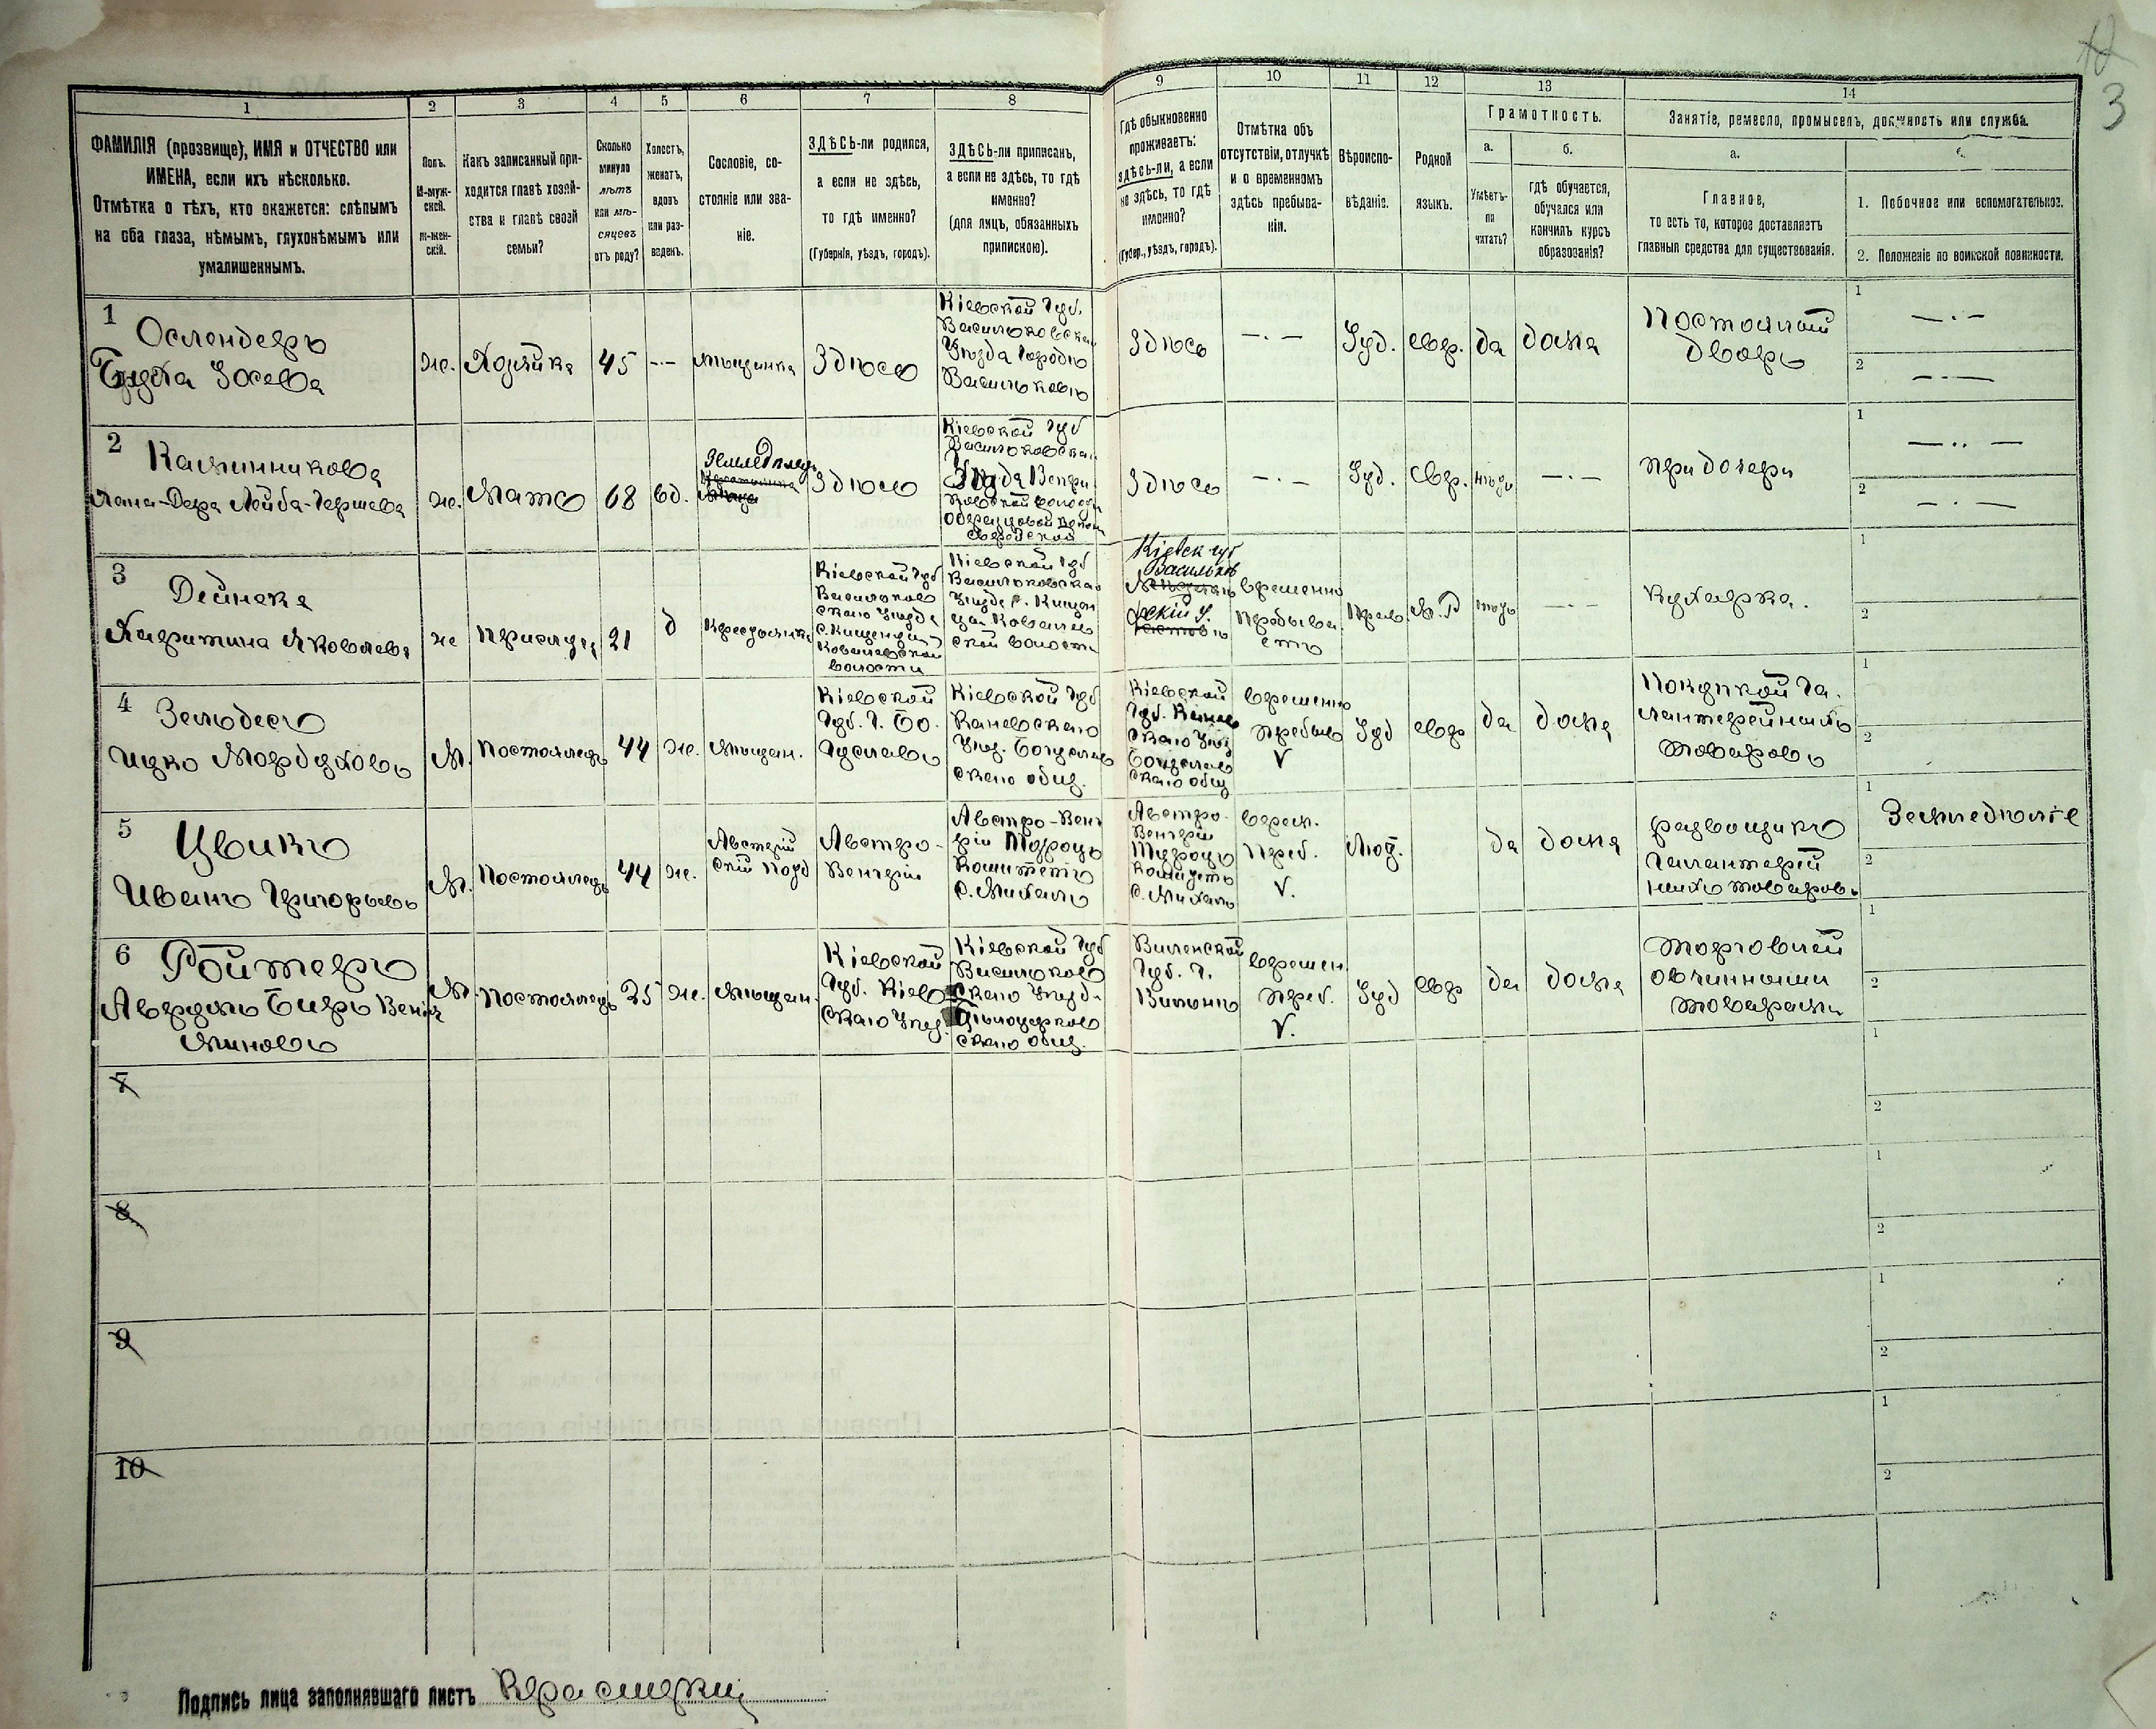 3
1
2
3
4
5
6
7
8
9
10
11
12
13
14
ФАМИЛІЯ (прозвище), ИМЯ и ОТЧЕСТВО или
ИМЕНА, если ихъ нѣсколько.
Отмѣтка о тѣхъ, кто окажется: слѣпымъ
на оба глаза, нѣмымъ, глухонѣмымъ или
умалишеннымъ.
Полъ.
М-муж-
ской.
Ж-жен-
скій.
Какъ записанный при-
ходится главѣ хозяй-
ства и главѣ своей
семьи?
Сколько
минуло
лѣтъ
или мѣ-
сяцевъ
отъ роду?
Холостъ,
женатъ,
вдовъ
или раз-
веденъ.
Сословіе, со-
стояніе или зва-
ніе.
ЗДѢСЬ-ли родился,
а если не здѣсь,
то гдѣ именно?
(Губернія, уѣздъ, городъ).
ЗДѢСЬ-ли приписанъ,
а если не здѣсь, то гдѣ
именно?
(для лицъ, обязанныхъ
припискою).
Гдѣ обыкновенно
проживаетъ:
здѣсь-ли, а если
не здѣсь, то гдѣ
именно?
(Губер., уѣздъ, городъ).
Отмѣтка объ
отсутствіи, отлучкѣ
и о временномъ
здѣсь пребыва-
ніи.
Вѣроиспо-
вѣданіе.
Родной
языкъ.
Грамотность.
а.
Умѣетъ-
ли
читать?
б.
гдѣ обучается,
обучался или
кончилъ курсъ
образованія?
Занятіе, ремесло, промыселъ, должность или служба.
а.
Главное,
то есть то, которое доставляетъ
главныя средства для существованія.
1. Побочное или вспомогательное.
2. Положеніе по воинской повинности.
1
Ослендеръ
Іосева
же.
Хозяйка
45
-·-
мѣщанка
Здѣсь
Кіевской Губ.
Васильковска
Уѣзда Городъ
Васильковъ
Здѣсь
-·-
Іуд.
евр.
да
дома
Постоялый
дворъ
1
-·-
2
-·-
2
Калинникова
Лейба-Гершева
же.
Мать
68
вд.
Здѣсь
Кіевской Губ
Васильковска
Здѣсь
-·-
Іуд.
Евр.
-·-
при дочери
1
-··-
2
-·-
3
Дейнека
Харитина Яковлева
же
Прислуга
21
д
Крестьянка
Кіевской Губ
Васильков
скаго Уѣзда
Ковалевской
волости
Кіевской Губ
Васильковска
Уѣзда с. Кищен
цы Ковалев
ской волости
Кіевск губ
Васильков
скій У.
временно
пребыва
етъ
Прав.
М.Р
-·-
Кухарка.
1
2
4
Зельдесъ
Ицко Мордуховъ
М.
Постоялецъ
44
же.
Мѣщан.
Кіевской
Губ. Г. Бо
гуславъ
Кіевской Губ
Каневскаго
Уѣз. Богуслав
скаго общ.
Кіевской
Губ. Канев
скаго Уѣз
Богуслав
скаго общ
временно
пребыв
V
Іуд
евр
да
дома
Покупкой Га-
лантерейныхъ
товаровъ
1
2
5
Цвикъ
Иванъ Григорьевъ
М.
Постоялецъ
44
же.
Австрій
скій подд
Австро-
Венгрія
Австро-Венг
ріи Туроцъ
Комитетъ
с.
Австро-
Венгріи
Туроцъ
Комитетъ
с.
врем.
преб.
V.
Лют.
да
дома
разнощикъ
Галантерей
ныхъ товаровъ
1
Земледѣліе
2
6
Ройтеръ
Аврумъ Беръ Венія
миновъ
М.
Постоялецъ
25
же.
мѣщан.
Кіевской
Губ. Кіев
скаго Уѣзд.
Кіевской Губ
Васильков
скаго Уѣзда
Бѣлоцерков
скаго общ.
Виленской
Губ. Г.
Вильнъ
времен.
преб.
V.
Іуд
евр
да
дома
торговлей
овчинными
товарами
1
2
7
1
2
8
1
2
9
1
2
10
1
2
Подпись лица заполнявшаго листъ